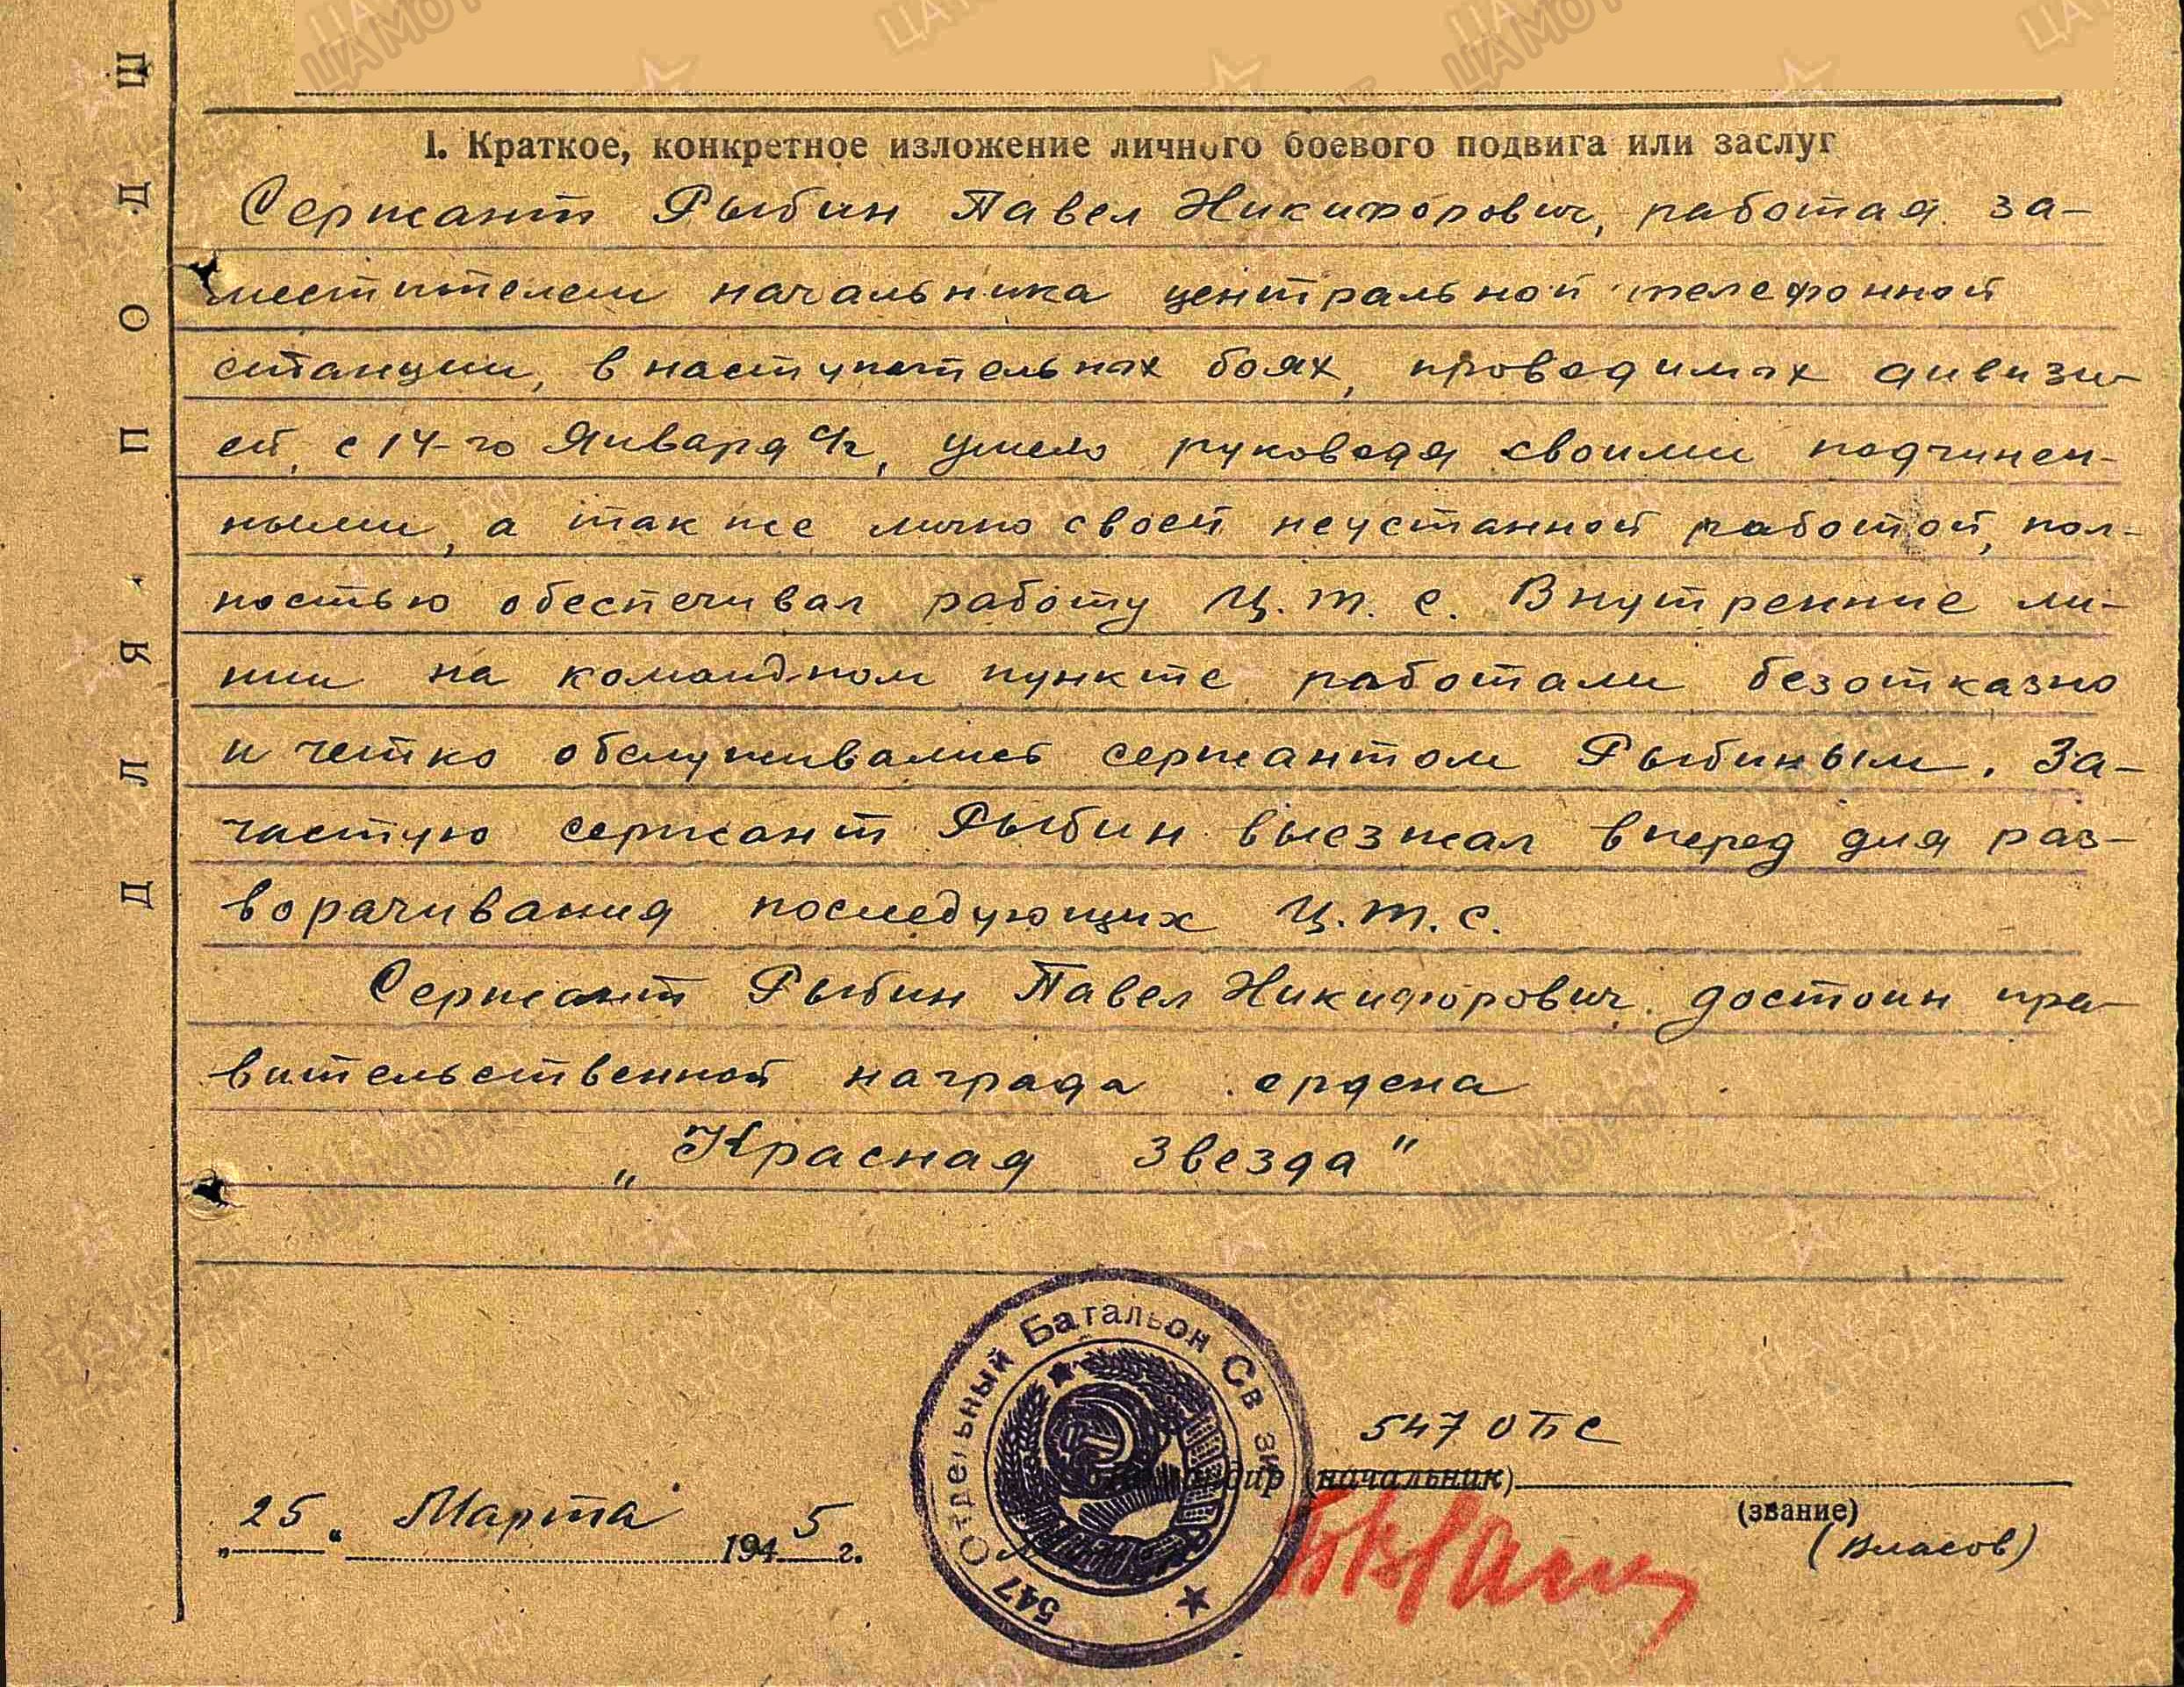 I. Краткое, конкретное изложение личного боевого подвига или заслуг
Сержант Рыбин Павел Никифорович, работая за-
местителем начальника центральной телефонной
станции, в наступательных боях, проводимых дивизи-
ей, с 14-го Января с/г, умело руководя своими подчинен-
ными, а так же лично своей неустанной работой, пол-
ностью обеспечивал работу Ц.Т.С. Внутренние ли-
нии на командном пункте работали безотказно
и четко обслуживались сержантом Рыбиным. За-
частую сержант Рыбин выезжал вперед для раз-
ворачивания последующих Ц.Т.С.
Сержант Рыбин Павел Никифорович достоин пра-
вительственной награда ордена
„Красная Звезда"
547 Отдельный Батальон Связи
547 ОБС
(начальник)
(звание)
(Власов)
„25" Марта 1945 г.
ДЛЯ ПОДШ